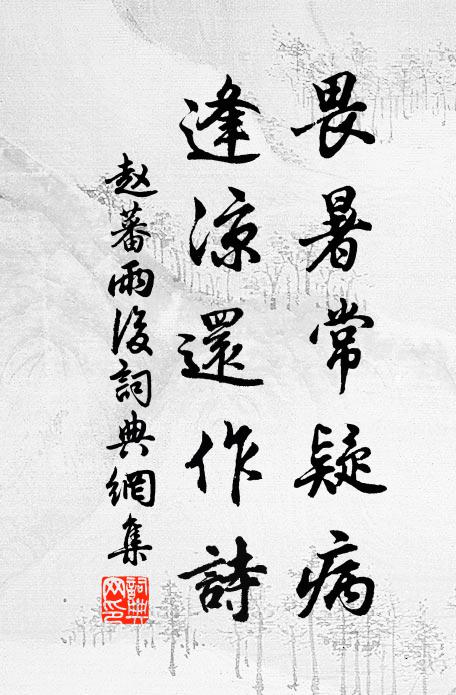 畏暑常疑病
逢涼還作詩
赵蕃雨後詞典網集
詞典網印